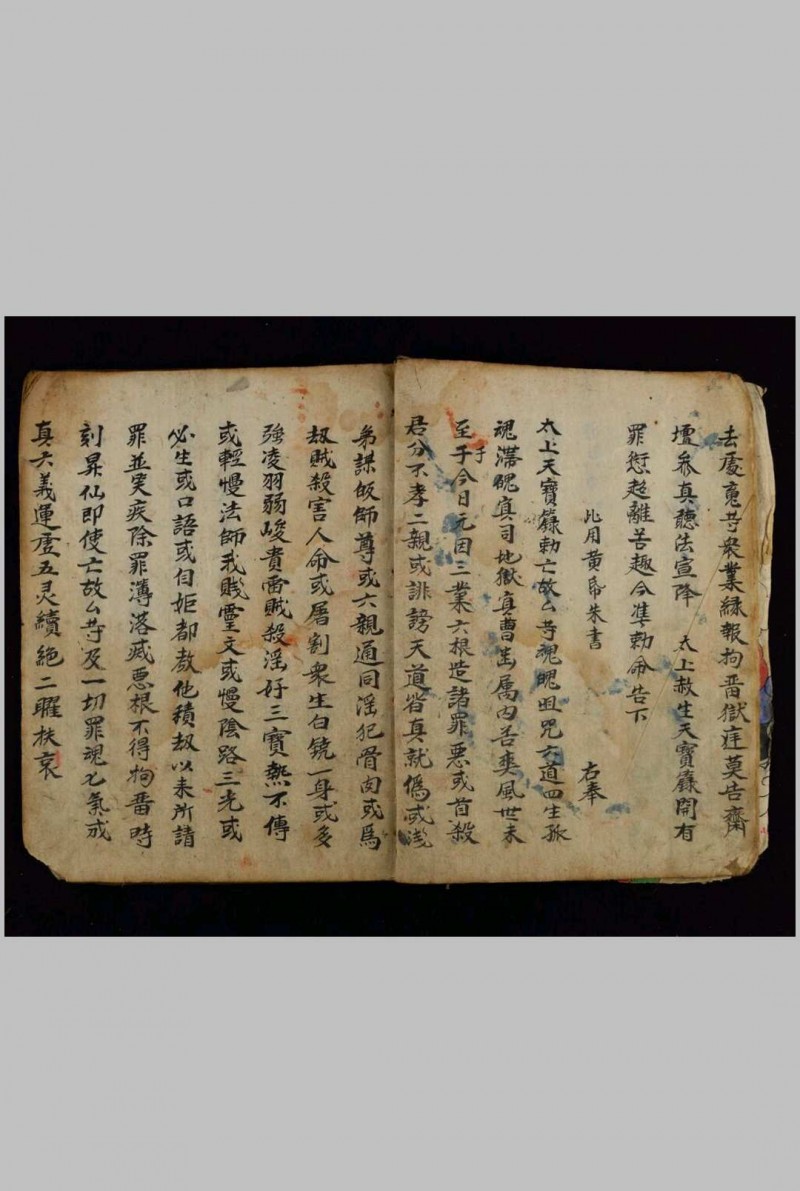 去處䰟等衆業緣報拘畨獄庭莫告齋
壇叅真聽法宣降 太上赦生天寶籙開有
罪愆超離苦趣今準勅命告下
右奉
此用黄帋朱書
太上天寶籙勅亡故厶等魂魄咀咒六道四生孤
魂滯魄真司地獄真曹嵓属内苦奭風世未
至于今日元因三業六根造諸罪惡或首殺
君分不孝二親或誹謗天道背真就僞或浅
弟謀皈師尊或六親通同淫犯骨肉或爲
刼賊殺害人命或屠割衆生白鏡一身或多
强凌羽弱峻貴畣賊殺淫好三寶熱不傳
或輕慢法師我賤靈文或慢陰路三光或
必生或口語或自姖都教他積刼以未所請
罪並炅疾除罪薄落滅悪根不得拘畨時
刻昇仙即使亡故厶等及一切罪魂炁氣成
真六義運虚五灵續絶二曜扶衰